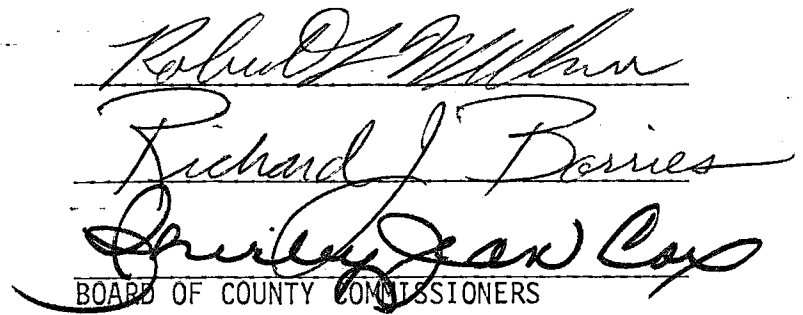 Robert L
Richard J Borries
Shirley Jean Cox
BOARD OF COUNTY COMMISSIONERS